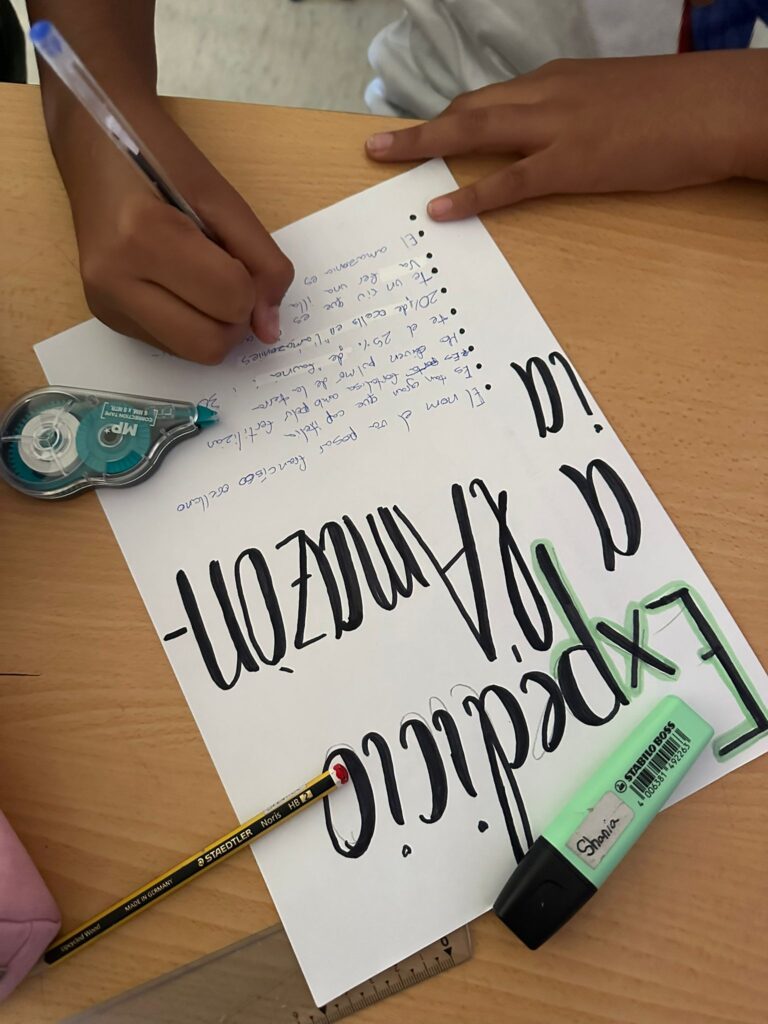 Expédició
a lAmazòn-
ia
El nom el va posar francisco orellano
Es tan gran que cap
amb pols fertilizan
Ho diuen pulmo de la terra
te el 25% de "fauna"
20% de ocells en
te un riu que es
Va ser una illa
El amazonia es
MP
CORRECTION TAPE
STAEDTLER Noris HB 2
MADE IN GERMANY
upcycled Wood
STABILO BOSS
4 006381 492263
Shania